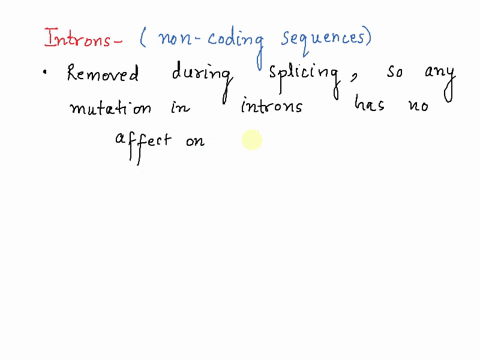 Introns- (non-coding sequences)
• Removed during splicing, so any
mutation in introns has no
affect on